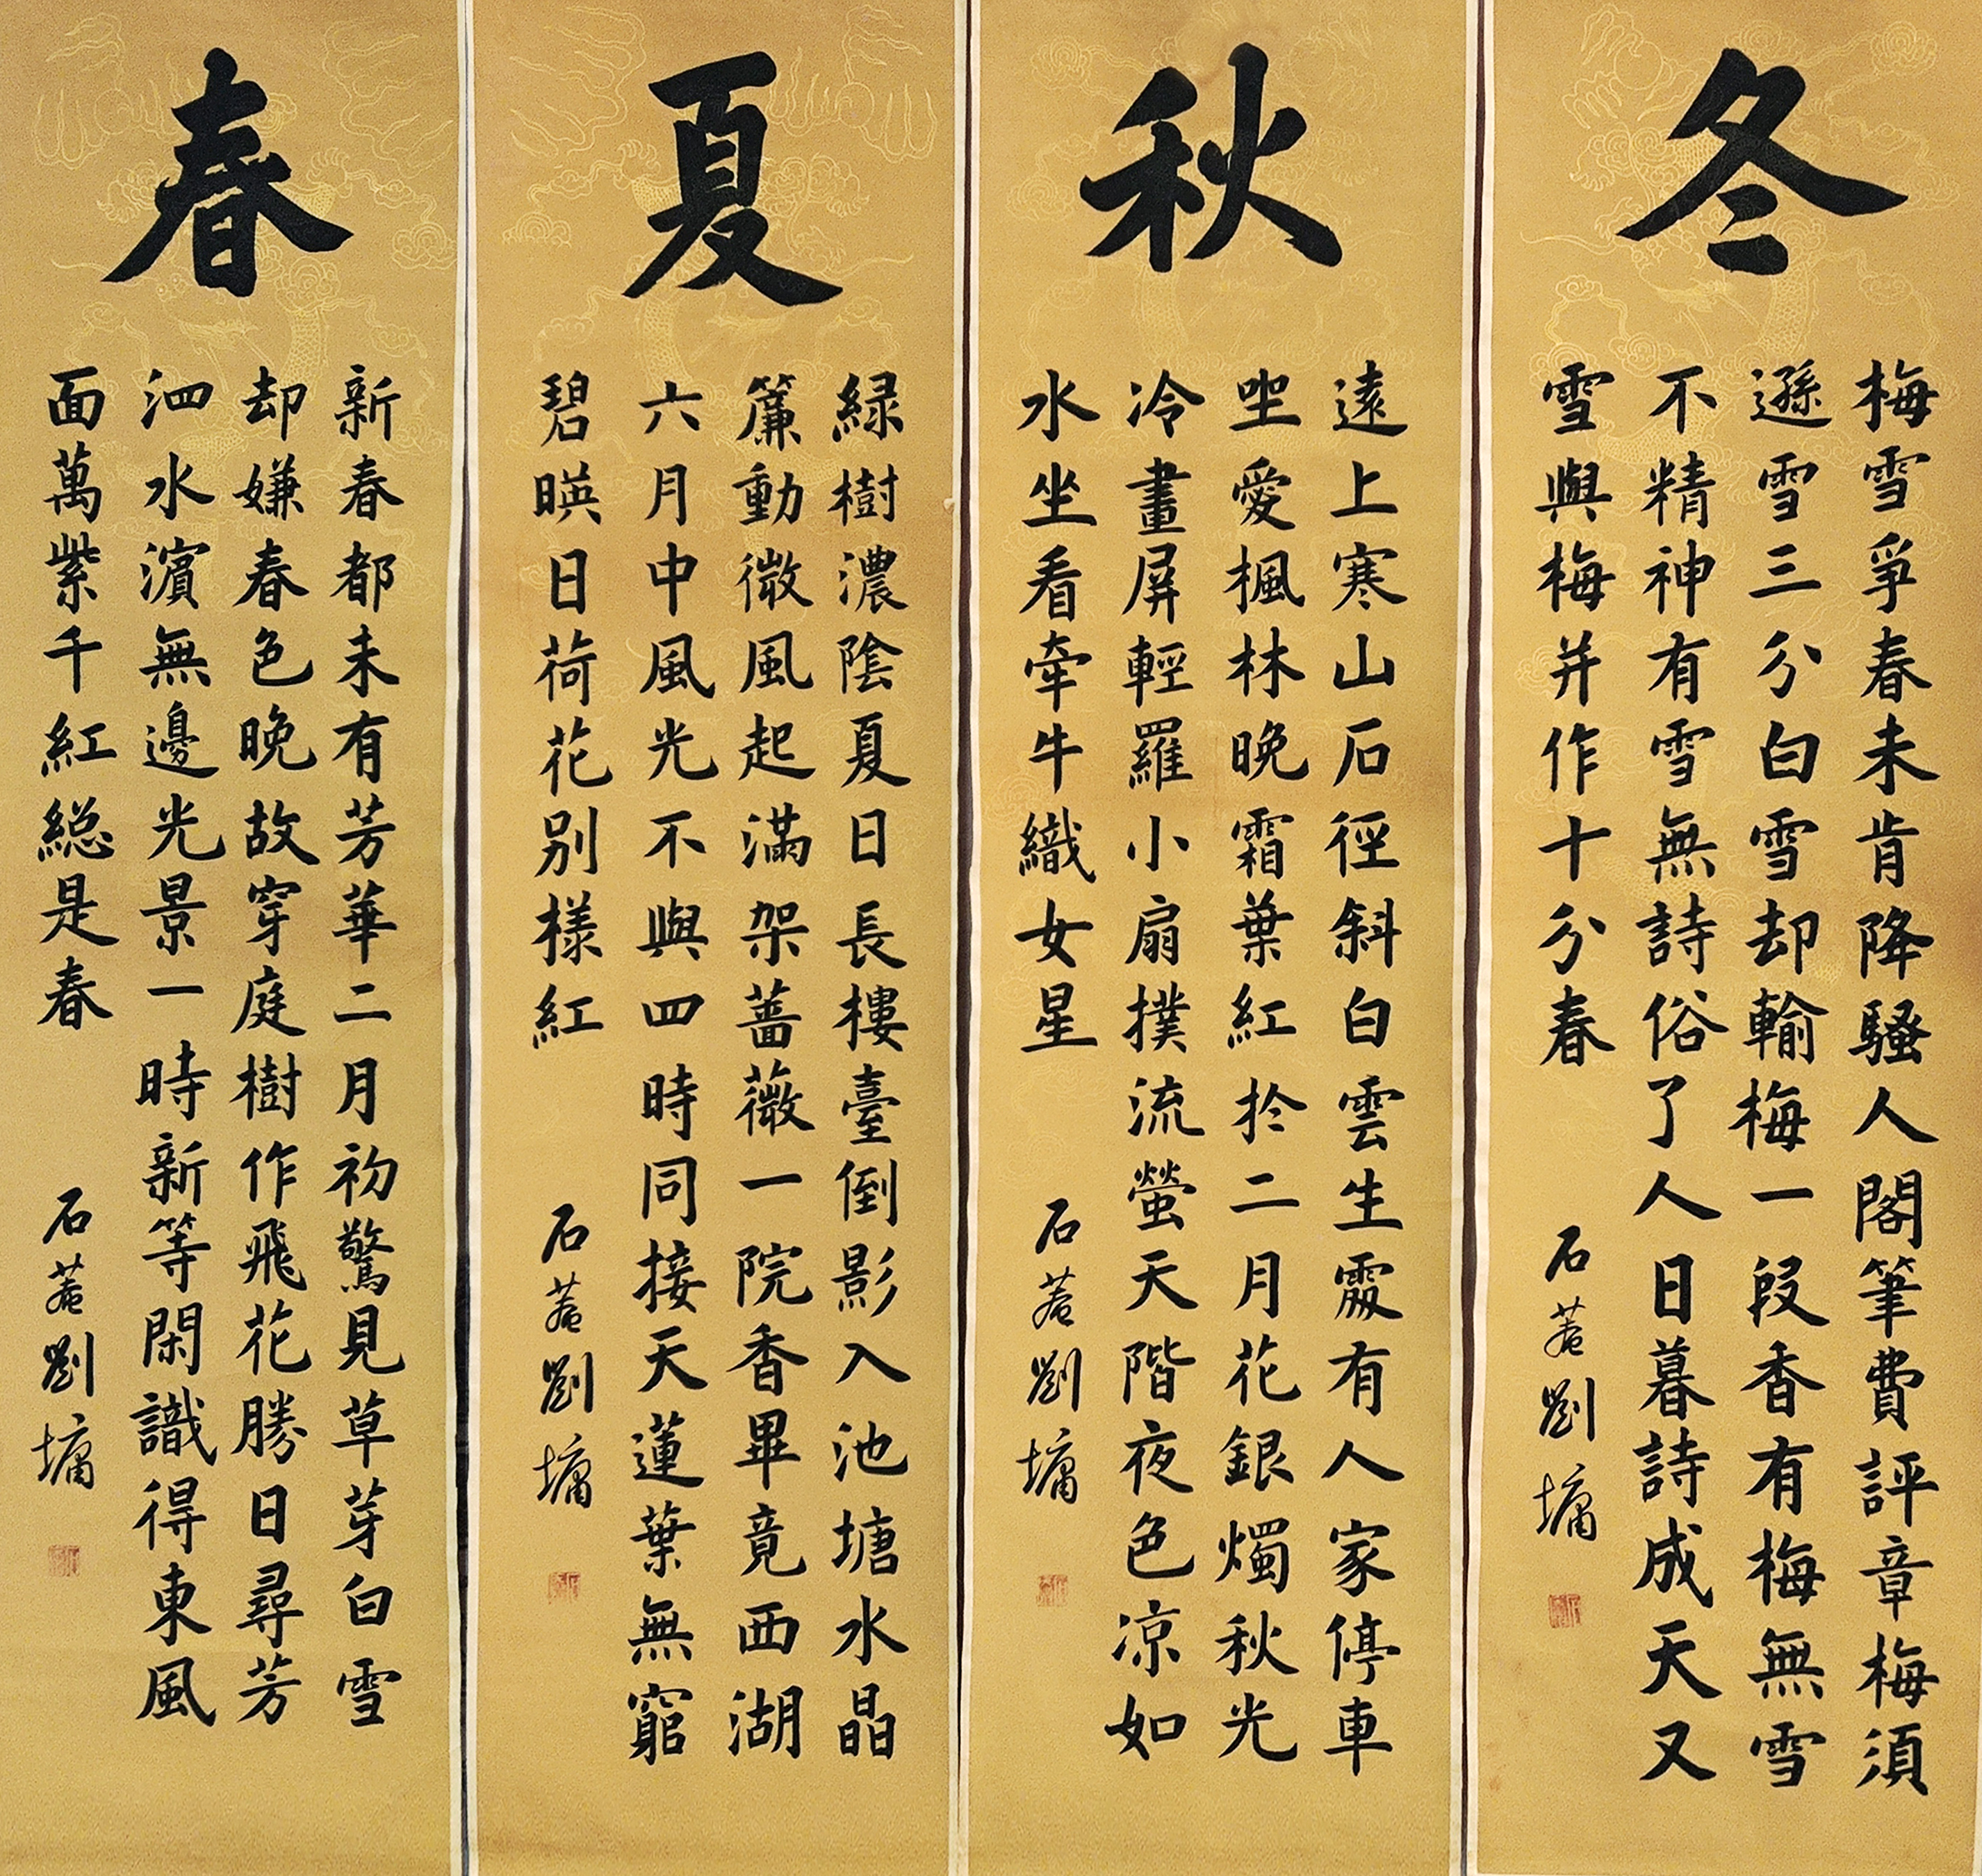 春
新春都未有芳華二月初驚見草芽白雪
却嫌春色晚故穿庭樹作飛花勝日尋芳
泗水濱無邊光景一時新等閑識得東風
面萬紫千紅総是春
石菴劉墉
夏
緑樹濃陰夏日長樓臺倒影入池塘水晶
簾動微風起滿架薔薇一院香畢竟西湖
六月中風光不與四時同接天蓮葉無窮
碧暎日荷花别樣紅
石菴劉墉
秋
遠上寒山石徑斜白雲生處有人家停車
坐愛楓林晚霜葉紅於二月花銀燭秋光
冷畫屏輕羅小扇撲流螢天階夜色凉如
水坐看牽牛織女星
石菴劉墉
冬
梅雪爭春未肯降騷人閣筆費評章梅須
遜雪三分白雪却輸梅一段香有梅無雪
不精神有雪無詩俗了人日暮詩成天又
雪與梅并作十分春
石菴劉墉